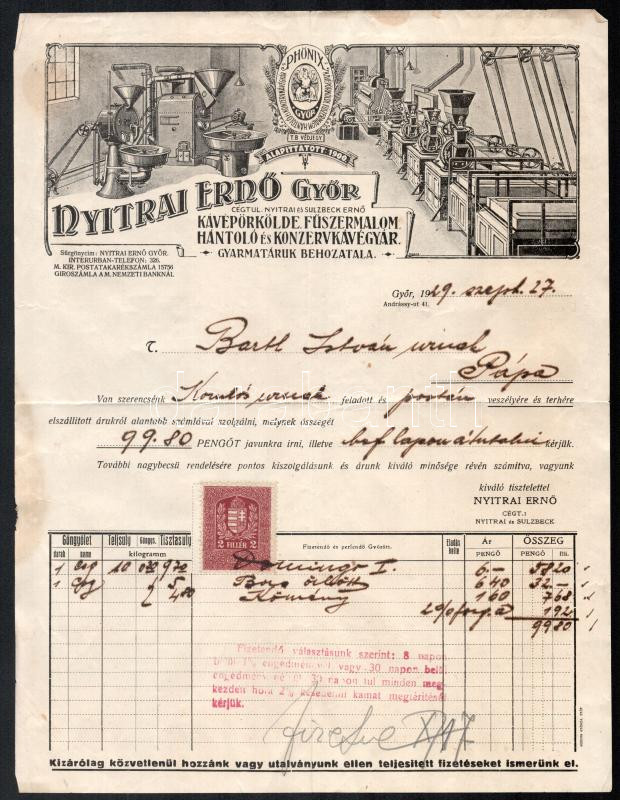 PHÖNIX
GYŐR
T.B. VÉDJEGY
ALAPÍTTATOTT 1900.
NYITRAI ERNŐ GYŐR
CÉGTUL. NYITRAI és SULZBECK ERNŐ
KÁVÉPÖRKÖLDE, FŰSZERMALOM,
HÁNTOLÓ ÉS KONZERVKÁVÉGYÁR.
GYARMATÁRUK BEHOZATALA.
Sürgönycim: NYITRAI ERNŐ GYŐR.
INTERURBAN-TELEFON: 326.
M. KIR. POSTATAKARÉKSZÁMLA 15756
GIROSZÁMLA A M. NEMZETI BANKNÁL
Győr, 1929. szept. 27.
Andrássy-ut 41.
T. Bartl István urnak
Pápa
Van szerencsénk Komlós urnak feladott és postán veszélyére és terhére
elszállitott árukról alantabb számlával szolgálni, melynek összegét
99.80 PENGŐT javunkra irni, illetve bef. lapon átutalni kérjük.
További nagybecsü rendelésére pontos kiszolgálásunk és árunk kiváló minősége révén számitva, vagyunk
kiváló tisztelettel
NYITRAI ERNŐ
CÉGT.:
NYITRAI és SULZBECK
2 FILLÉR 2
Göngyölet Teljsuly Göngys. Tisztasuly Fizetendő és perlendő Győrött. Eladás kelte Ár ÖSSZEG
darab neme kilogramm PENGŐ PENGŐ fill.
1 10 970 Domingo I. 6.- 58 20
1 5 640 32.-
480 Kömény 160 768
2% 192
99 80
Fizetendő választásunk szerint: 8 napon
belül 1% engedménnyel vagy 30 napon belül
engedmény nélkül 30 napon tul minden meg-
kezdett hóra 2% késedelmi kamat megtéritését
kérjük.
Fizetve
Kizárólag közvetlenül hozzánk vagy utalványunk ellen teljesitett fizetéseket ismerünk el.